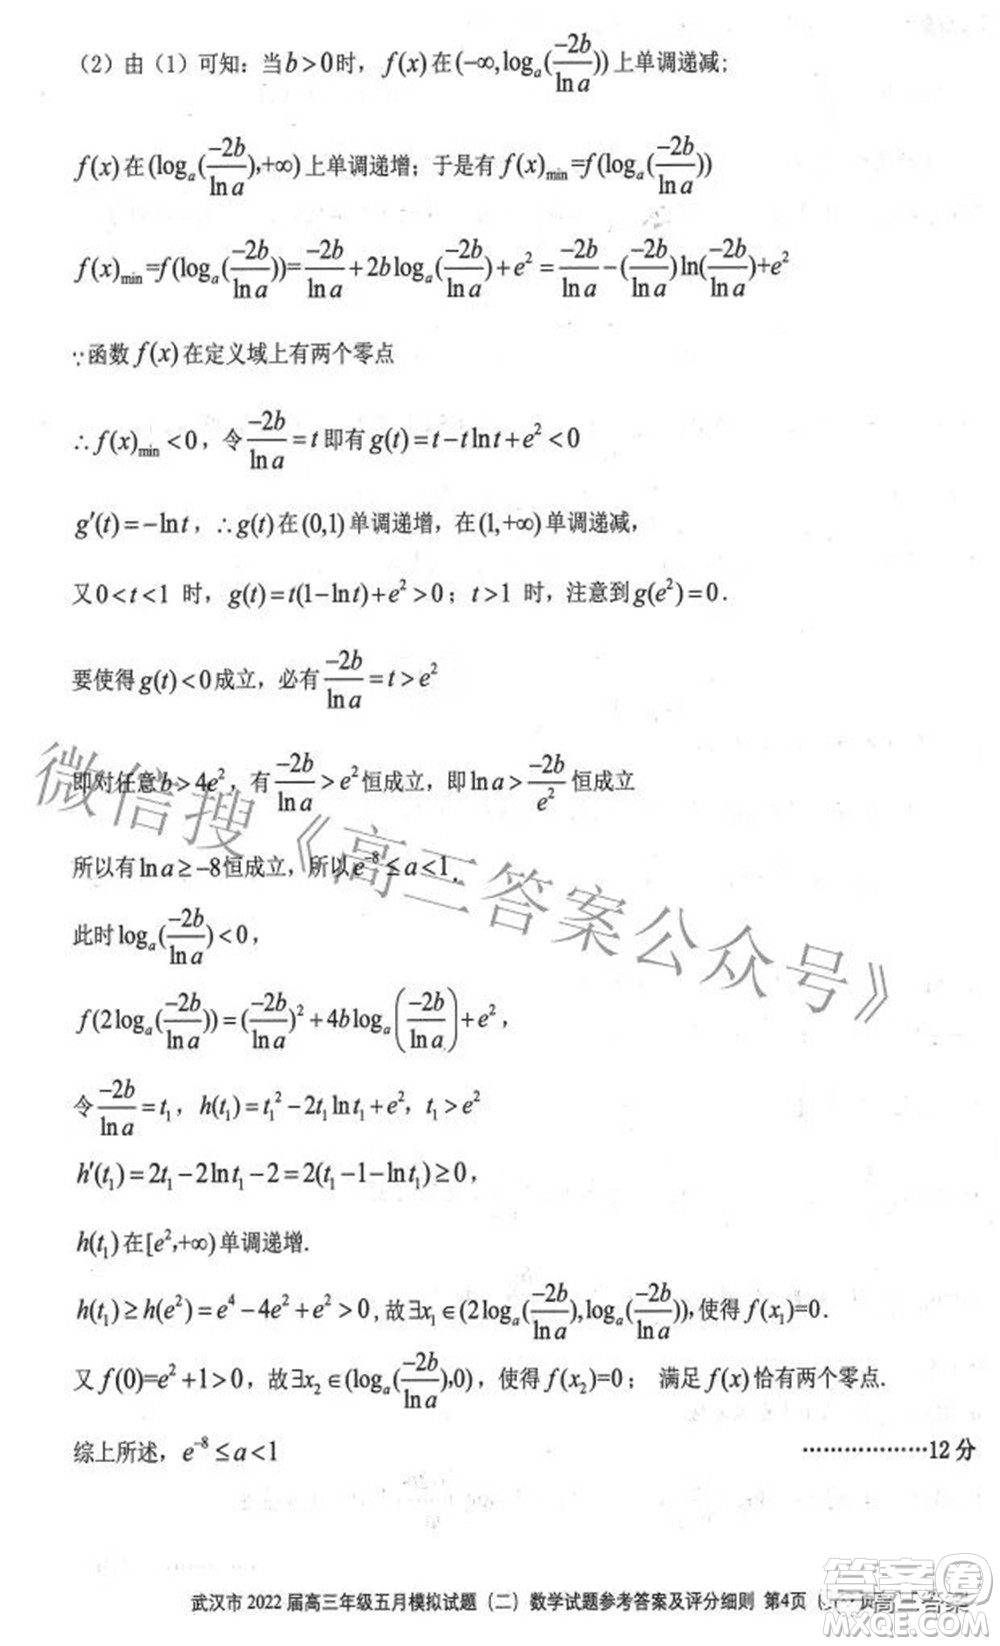 （2）由（1）可知：当b>0时，f(x)在(-∞,logₐ(-2b/ln a))上单调递减;
f(x)在(logₐ(-2b/ln a),+∞)上单调递增；于是有f(x)min=f(logₐ(-2b/ln a))
f(x)min=f(logₐ(-2b/ln a))=-2b/ln a+2blogₐ(-2b/ln a)+e²=-2b/ln a-(-2b/ln a)ln(-2b/ln a)+e²
∵函数f(x)在定义域上有两个零点
∴f(x)min<0，令-2b/ln a=t即有g(t)=t-tlnt+e²<0
g′(t)=-lnt，∴g(t)在(0,1)单调递增，在(1,+∞)单调递减，
又0<t<1 时，g(t)=t(1-lnt)+e²>0；t>1 时，注意到g(e²)=0．
要使得g(t)<0成立，必有-2b/ln a=t>e²
即对任意b>4e²，有-2b/ln a>e²恒成立，即ln a>-2b/e²恒成立
所以有ln a≥-8恒成立，所以e⁻⁸≤a<1．
此时logₐ(-2b/ln a)<0，
f(2logₐ(-2b/ln a))=(-2b/ln a)²+4blogₐ(-2b/ln a)+e²，
令-2b/ln a=t₁，h(t₁)=t₁²-2t₁lnt₁+e²，t₁>e²
h′(t₁)=2t₁-2lnt₁-2=2(t₁-1-lnt₁)≥0，
h(t₁)在[e²,+∞)单调递增.
h(t₁)≥h(e²)=e⁴-4e²+e²>0，故∃x₁∈(2logₐ(-2b/ln a),logₐ(-2b/ln a)),使得f(x₁)=0.
又f(0)=e²+1>0，故∃x₂∈(logₐ(-2b/ln a),0)，使得f(x₂)=0； 满足f(x)恰有两个零点.
综上所述，e⁻⁸≤a<1 ………………12分
微信搜《高三答案公众号》
武汉市2022届高三年级五月模拟试题（二）数学试题参考答案及评分细则 第4页
高三答案